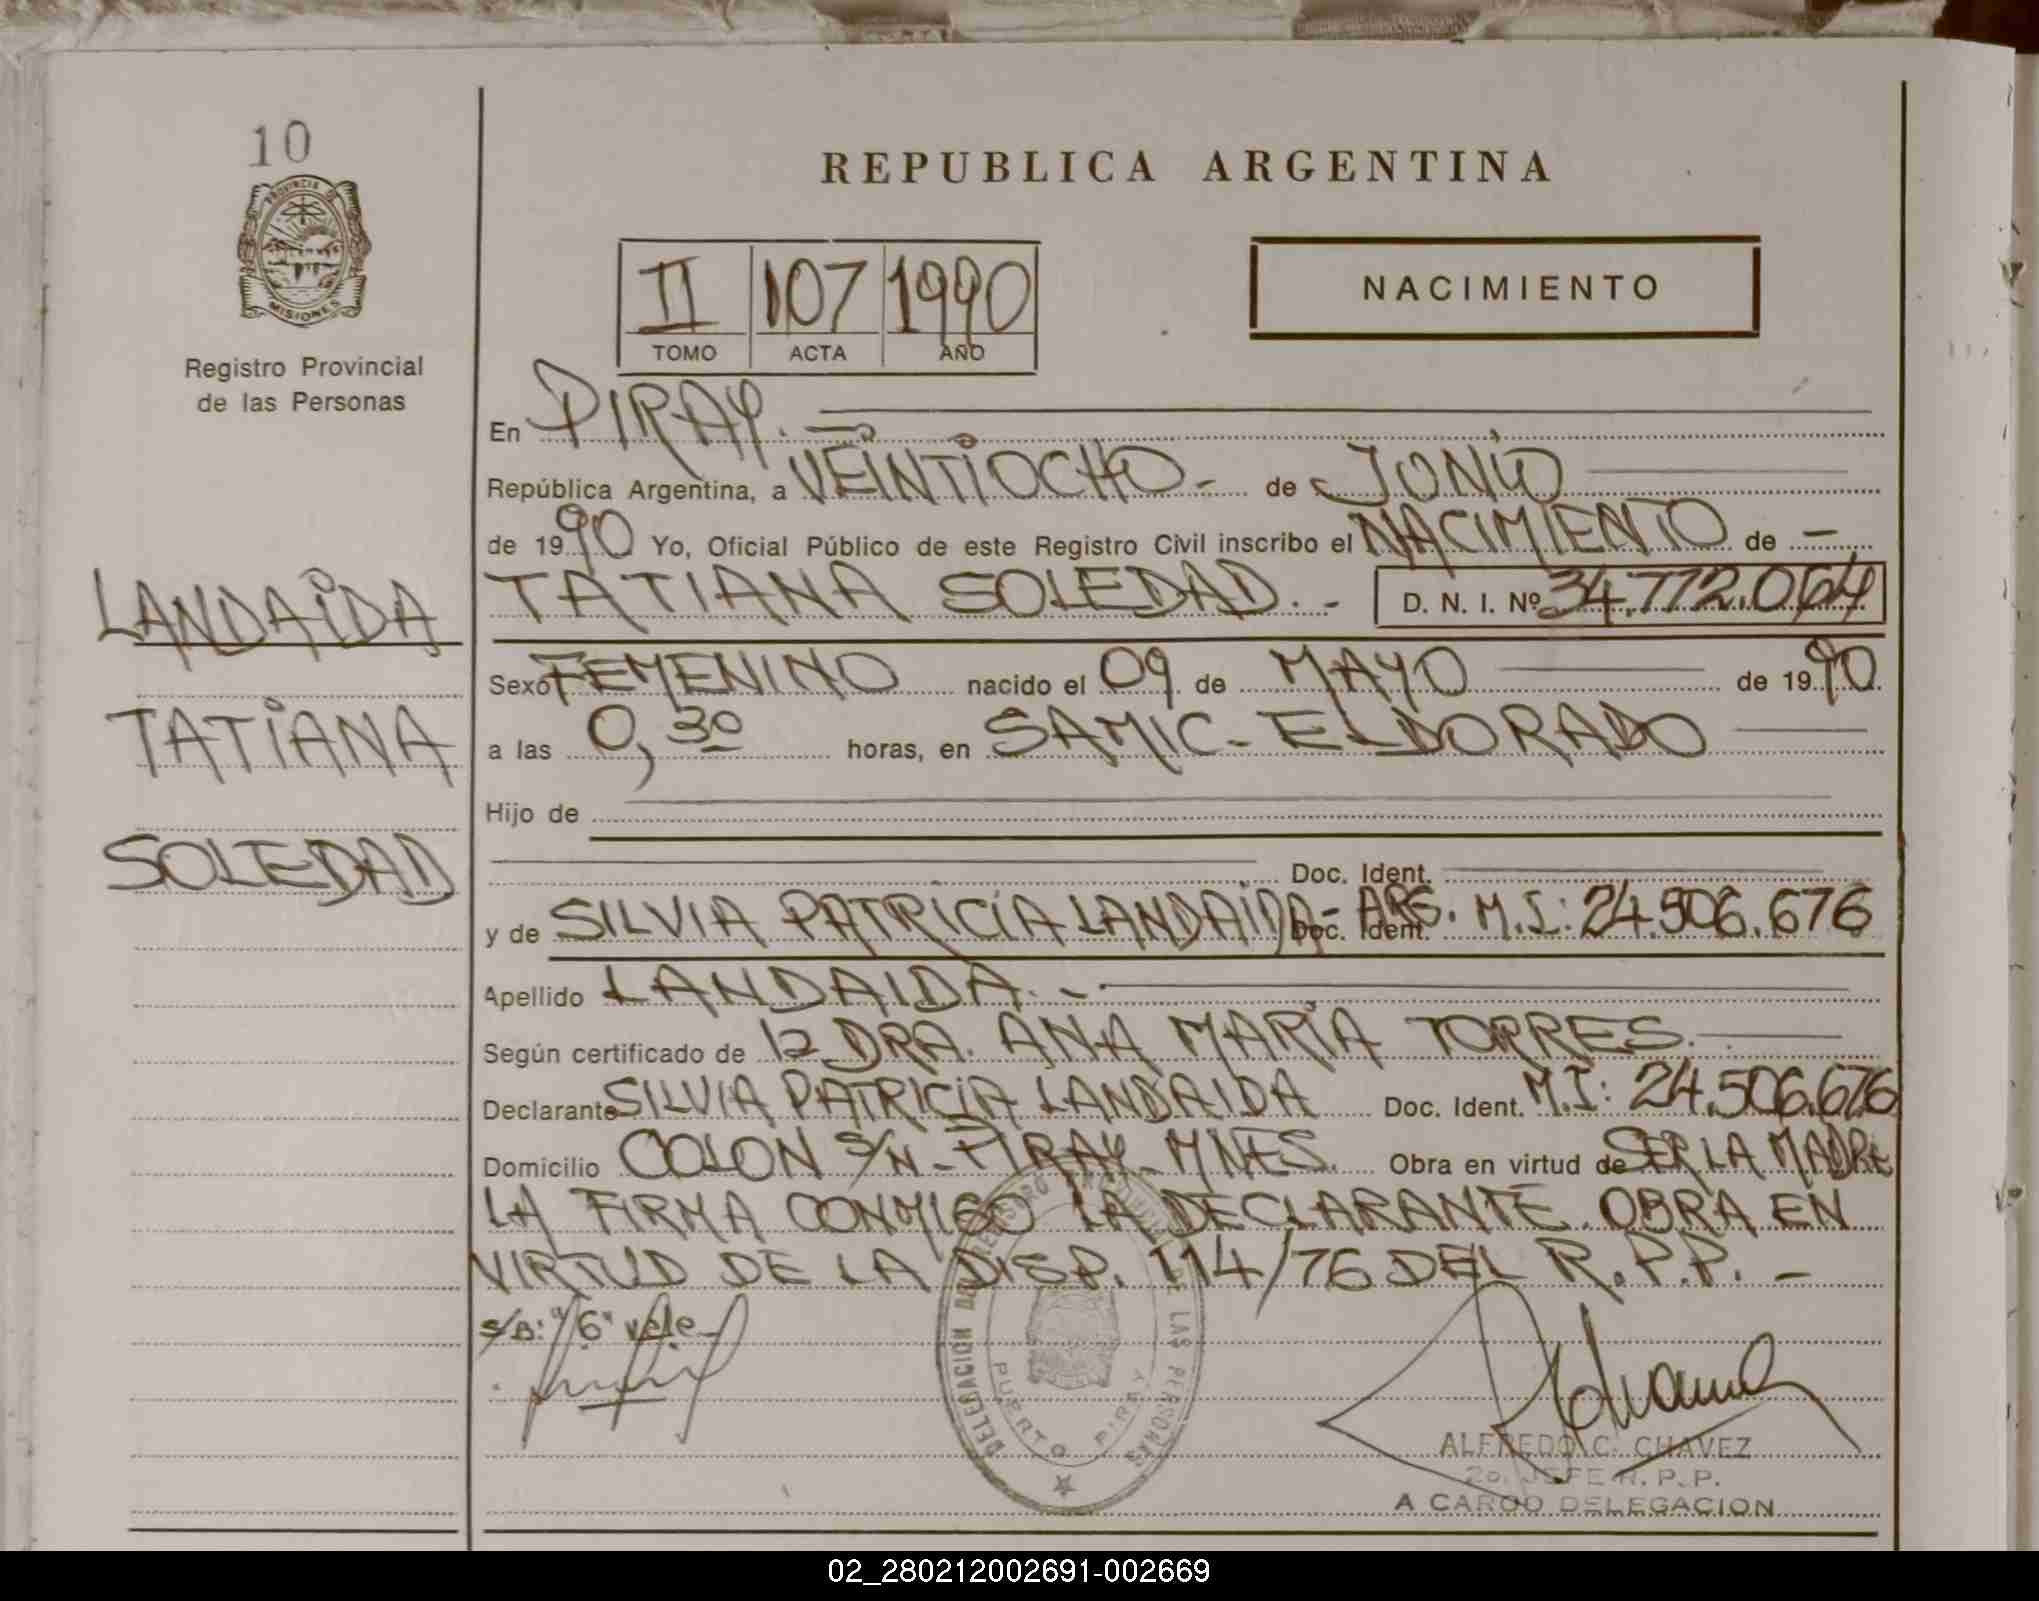 10
PROVINCIA DE
MISIONES
Registro Provincial
de las Personas
LANDAIDA
TATIANA
SOLEDAD
REPUBLICA ARGENTINA
II 107 1990
TOMO ACTA AÑO
NACIMIENTO
En PIRAY.
República Argentina, a VEINTIOCHO.- de JUNIO
de 1990 Yo, Oficial Público de este Registro Civil inscribo el NACIMIENTO de -
TATIANA SOLEDAD.- D. N. I. Nº 34.772.064
Sexo FEMENINO nacido el 09 de MAYO de 1990.
a las 0,30 horas, en SAMIC - ELDORADO
Hijo de
Doc. Ident.
y de SILVIA PATRICIA LANDAIDA - Doc. Ident. ARG. M.I: 24.506.676
Apellido LANDAIDA.-
Según certificado de 12 DRA. ANA MARÍA TORRES.
Declarante SILVIA PATRICIA LANDAIDA Doc. Ident. M.I: 24.506.676
Domicilio COLON S/N - PIRAY - MNES. Obra en virtud de SER LA MADRE
LA FIRMA CONMIGO LA DECLARANTE. OBRA EN
VIRTUD DE LA DISP. 114/76 DEL R.P.P. -
S/B: "6" vale
DELEGACION DEL REGISTRO PROVINCIAL DE LAS PERSONAS
PUERTO PIRAY
ALFREDO C. CHAVEZ
2o. JEFE R. P. P.
A CARGO DELEGACION
02_280212002691-002669